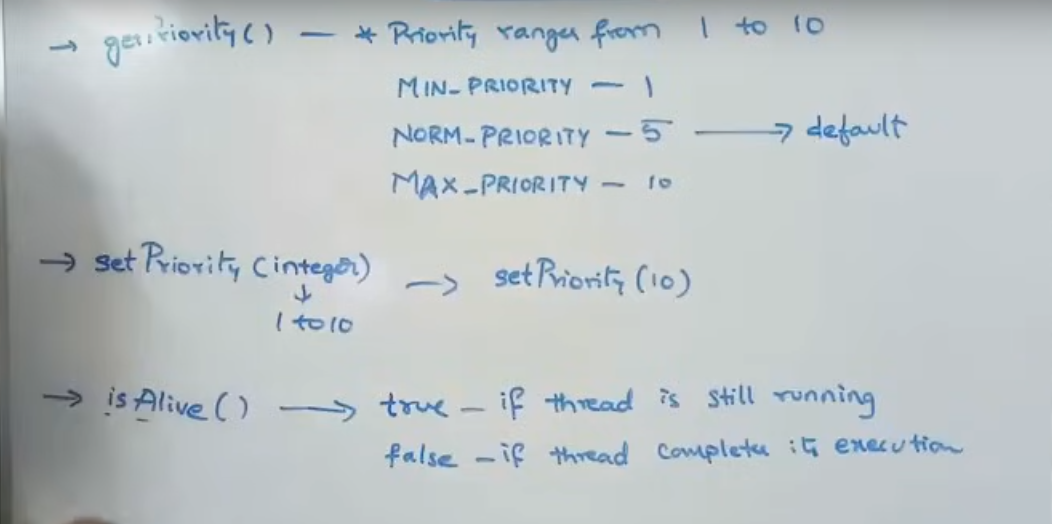 → getPriority() — * Priority ranges from 1 to 10
MIN_PRIORITY — 1
NORM_PRIORITY — 5 → default
MAX_PRIORITY — 10
→ setPriority (integer) → setPriority (10)
↓
1 to 10
→ isAlive() → true — if thread is still running
false — if thread completes its execution